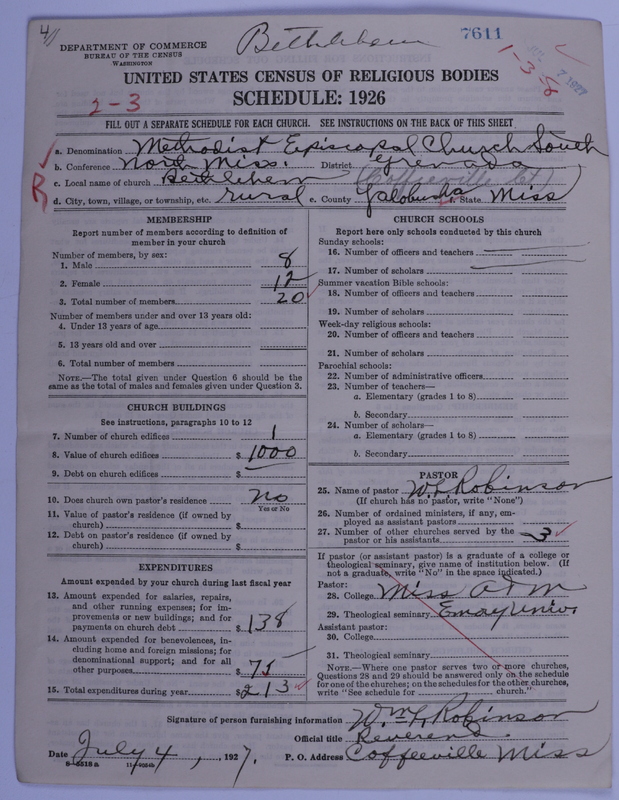 4
Bethlehem
7611
JUL 7 1927
1-3-8
DEPARTMENT OF COMMERCE
BUREAU OF THE CENSUS
WASHINGTON
UNITED STATES CENSUS OF RELIGIOUS BODIES
2-3
SCHEDULE: 1926
FILL OUT A SEPARATE SCHEDULE FOR EACH CHURCH. SEE INSTRUCTIONS ON THE BACK OF THIS SHEET
a. Denomination Methodist Episcopal Church South
b. Conference North Miss. District Grenada
c. Local name of church Bethlehem (Coffeeville Ct)
R
d. City, town, village, or township, etc. rural e. County Yalobusha f. State Miss
MEMBERSHIP
Report number of members according to definition of
member in your church
Number of members, by sex:
1. Male 8
2. Female 12
3. Total number of members 20
Number of members under and over 13 years old:
4. Under 13 years of age
5. 13 years old and over
6. Total number of members
NOTE.—The total given under Question 6 should be the
same as the total of males and females given under Question 3.
CHURCH BUILDINGS
See instructions, paragraphs 10 to 12
7. Number of church edifices 1
8. Value of church edifices $1000
9. Debt on church edifices $
10. Does church own pastor's residence no
Yes or No
11. Value of pastor's residence (if owned by
church) $
12. Debt on pastor's residence (if owned by
church) $
EXPENDITURES
Amount expended by your church during last fiscal year
13. Amount expended for salaries, repairs,
and other running expenses; for im-
provements or new buildings; and for
payments on church debt $138
14. Amount expended for benevolences, in-
cluding home and foreign missions; for
denominational support; and for all
other purposes $75
15. Total expenditures during year $213
CHURCH SCHOOLS
Report here only schools conducted by this church
Sunday schools:
16. Number of officers and teachers
17. Number of scholars
Summer vacation Bible schools:
18. Number of officers and teachers
19. Number of scholars
Week-day religious schools:
20. Number of officers and teachers
21. Number of scholars
Parochial schools:
22. Number of administrative officers
23. Number of teachers—
a. Elementary (grades 1 to 8)
b. Secondary
24. Number of scholars—
a. Elementary (grades 1 to 8)
b. Secondary
PASTOR
25. Name of pastor W L Robinson
(If church has no pastor, write "None")
26. Number of ordained ministers, if any, em-
ployed as assistant pastors
27. Number of other churches served by the
pastor or his assistants 3
If pastor (or assistant pastor) is a graduate of a college or
theological seminary, give name of institution below. (If
not a graduate, write "No" in the space indicated.)
Pastor:
28. College Miss A & M
29. Theological seminary Emory Univ
Assistant pastor:
30. College
31. Theological seminary
NOTE.—Where one pastor serves two or more churches,
Questions 28 and 29 should be answered only on the schedule
for one of the churches; on the schedules for the other churches,
write "See schedule for church."
Signature of person furnishing information Wm L Robinson
Official title Reverend.
Date July 4, 1927. P. O. Address Coffeeville Miss